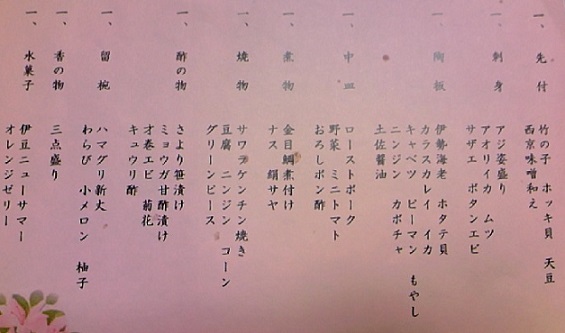 一、先付
竹の子 ホッキ貝 天豆
西京味噌和え
一、刺身
アジ姿盛り
アオリイカ ムツ
サザエ ボタンエビ
一、陶板
伊勢海老 ホタテ貝
カラスカレイ イカ
キャベツ ピーマン もやし
ニンジン カボチャ
土佐醤油
一、中皿
ローストポーク
野菜 ミニトマト
おろしポン酢
一、煮物
金目鯛煮付け
ナス 絹サヤ
一、焼物
サワラケンチン焼き
豆腐 ニンジン コーン
グリーンピース
一、酢の物
さより笹漬け
ミョウガ甘酢漬け
才巻エビ 菊花
キュウリ酢
一、留椀
ハマグリ新丈
わらび 小メロン 柚子
一、香の物
三点盛り
一、水菓子
伊豆ニューサマー
オレンジゼリー